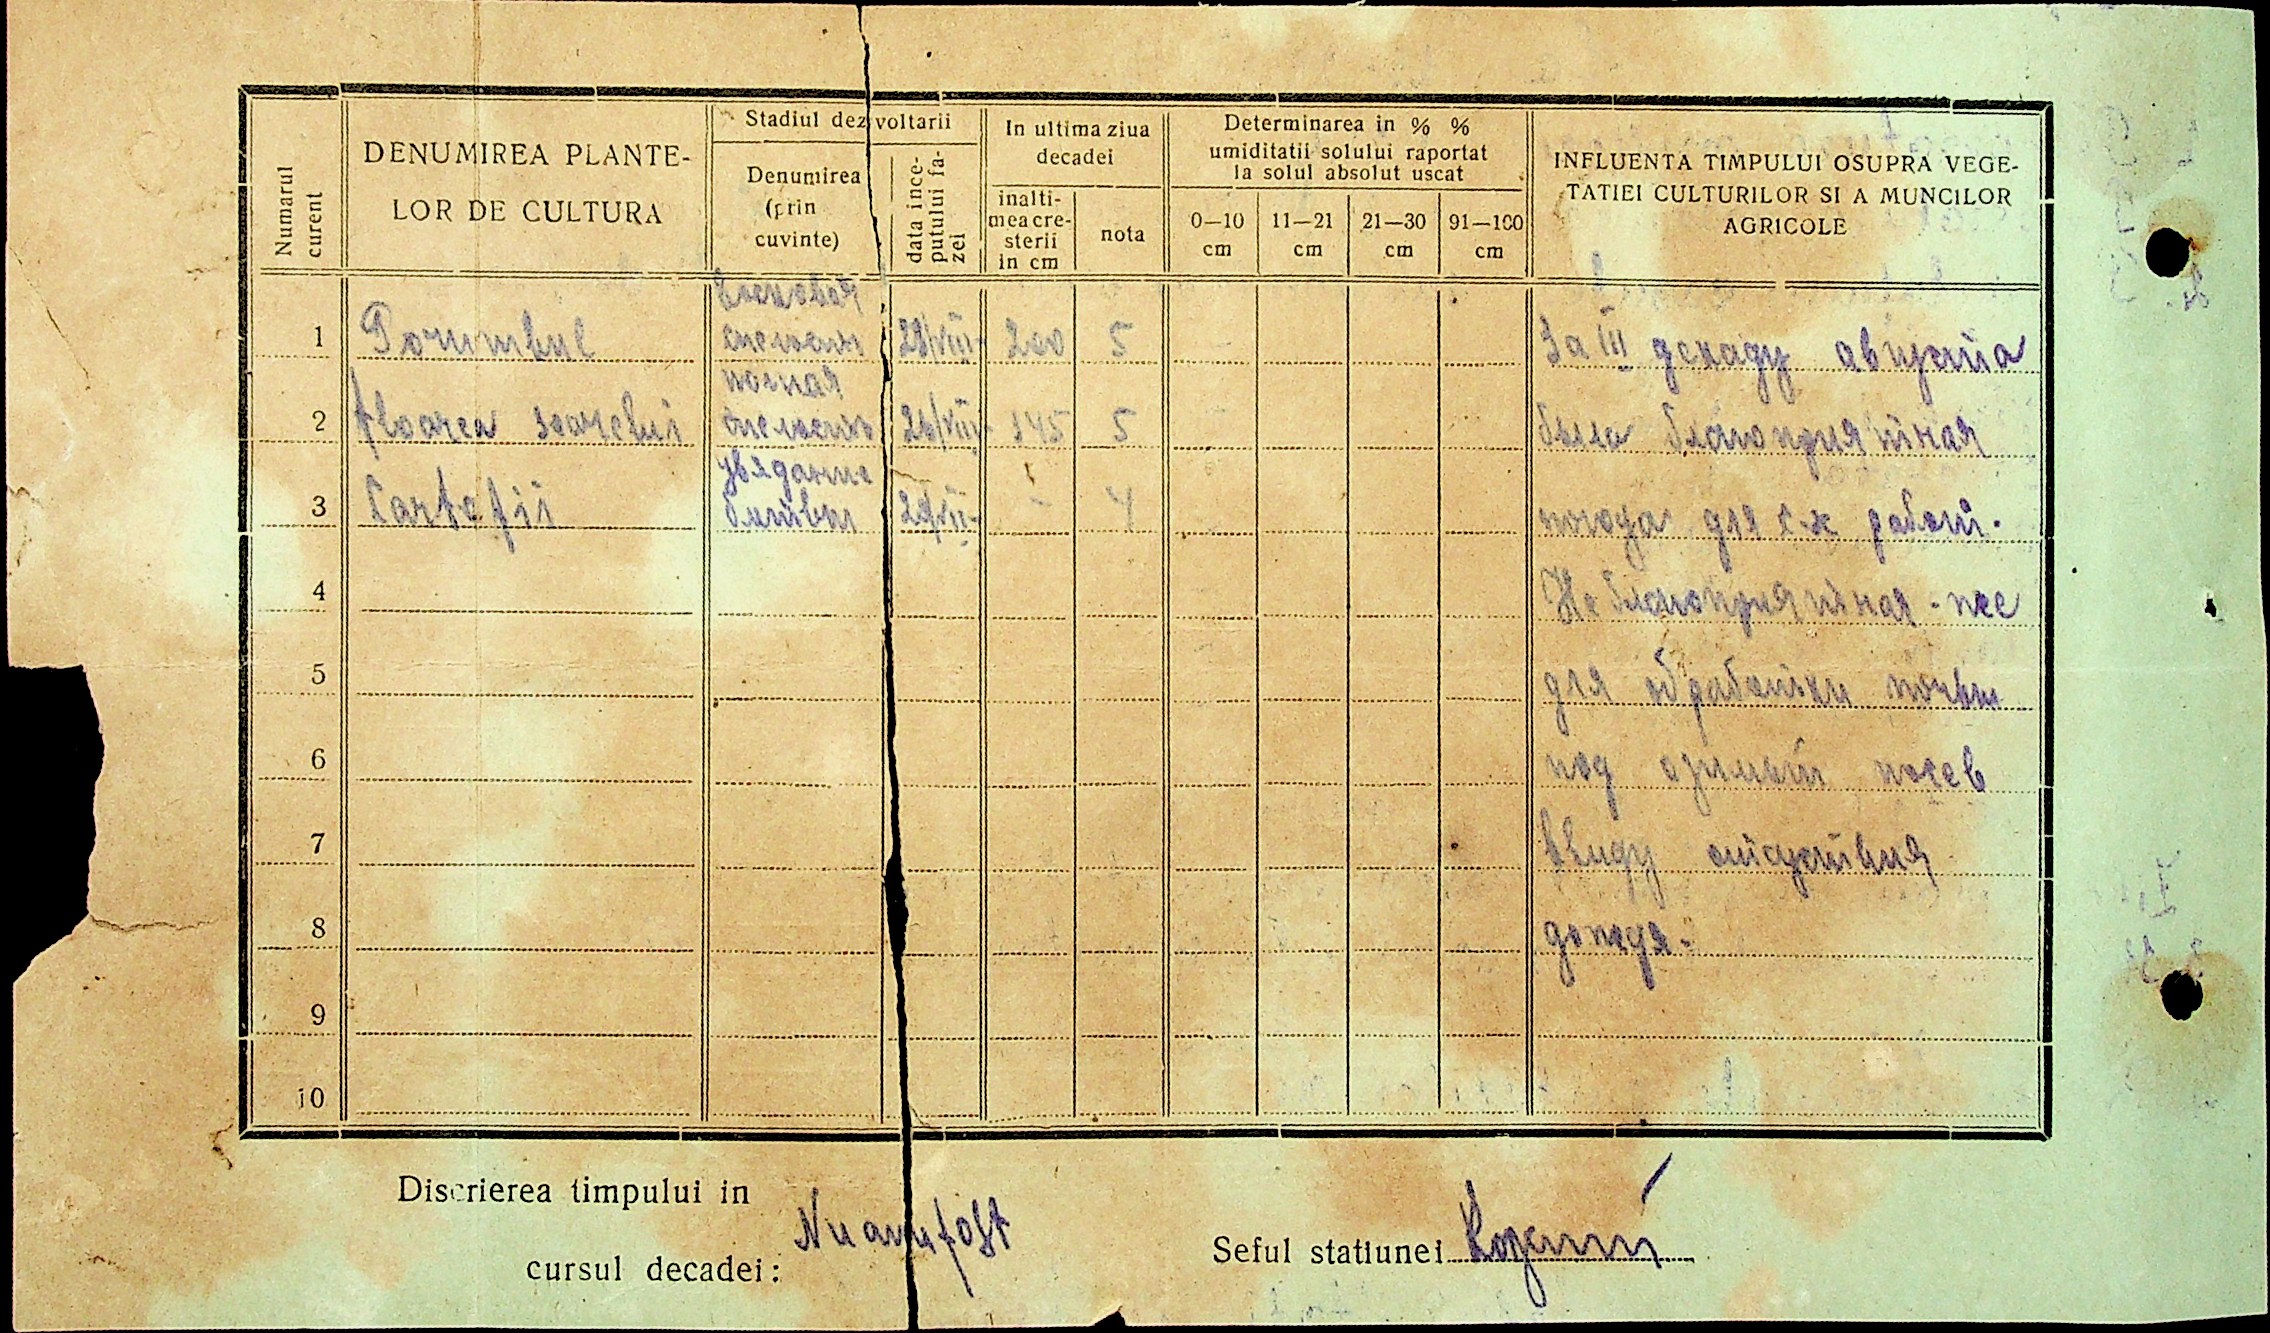 Numarul curent
DENUMIREA PLANTE-
LOR DE CULTURA
Stadiul dezvoltarii
Denumirea
(prin
cuvinte)
data ince-
putului fa-
zei
In ultima ziua
decadei
inalti-
mea cre-
sterii
in cm
nota
Determinarea in % %
umiditatii solului raportat
la solul absolut uscat
0—10
cm
11—21
cm
21—30
cm
91—100
cm
INFLUENTA TIMPULUI OSUPRA VEGE-
TATIEI CULTURILOR SI A MUNCILOR
AGRICOLE
восковая
1 Porumbul спелость 28/VIII 200 5
полная
2 floarea soarelui спелость 26/VIII 145 5
увядание
3 Cartofii ботвы 29/VII - 4
4
5
6
7
8
9
10
За III декаду августа
была благоприятная
погода для с-х работ.
Не благоприятная - нее
для обработки почвы
под озимый посев
ввиду отсутствия
дождя.
Discrierea timpului in
cursul decadei: Nu am fost
Seful statiunei